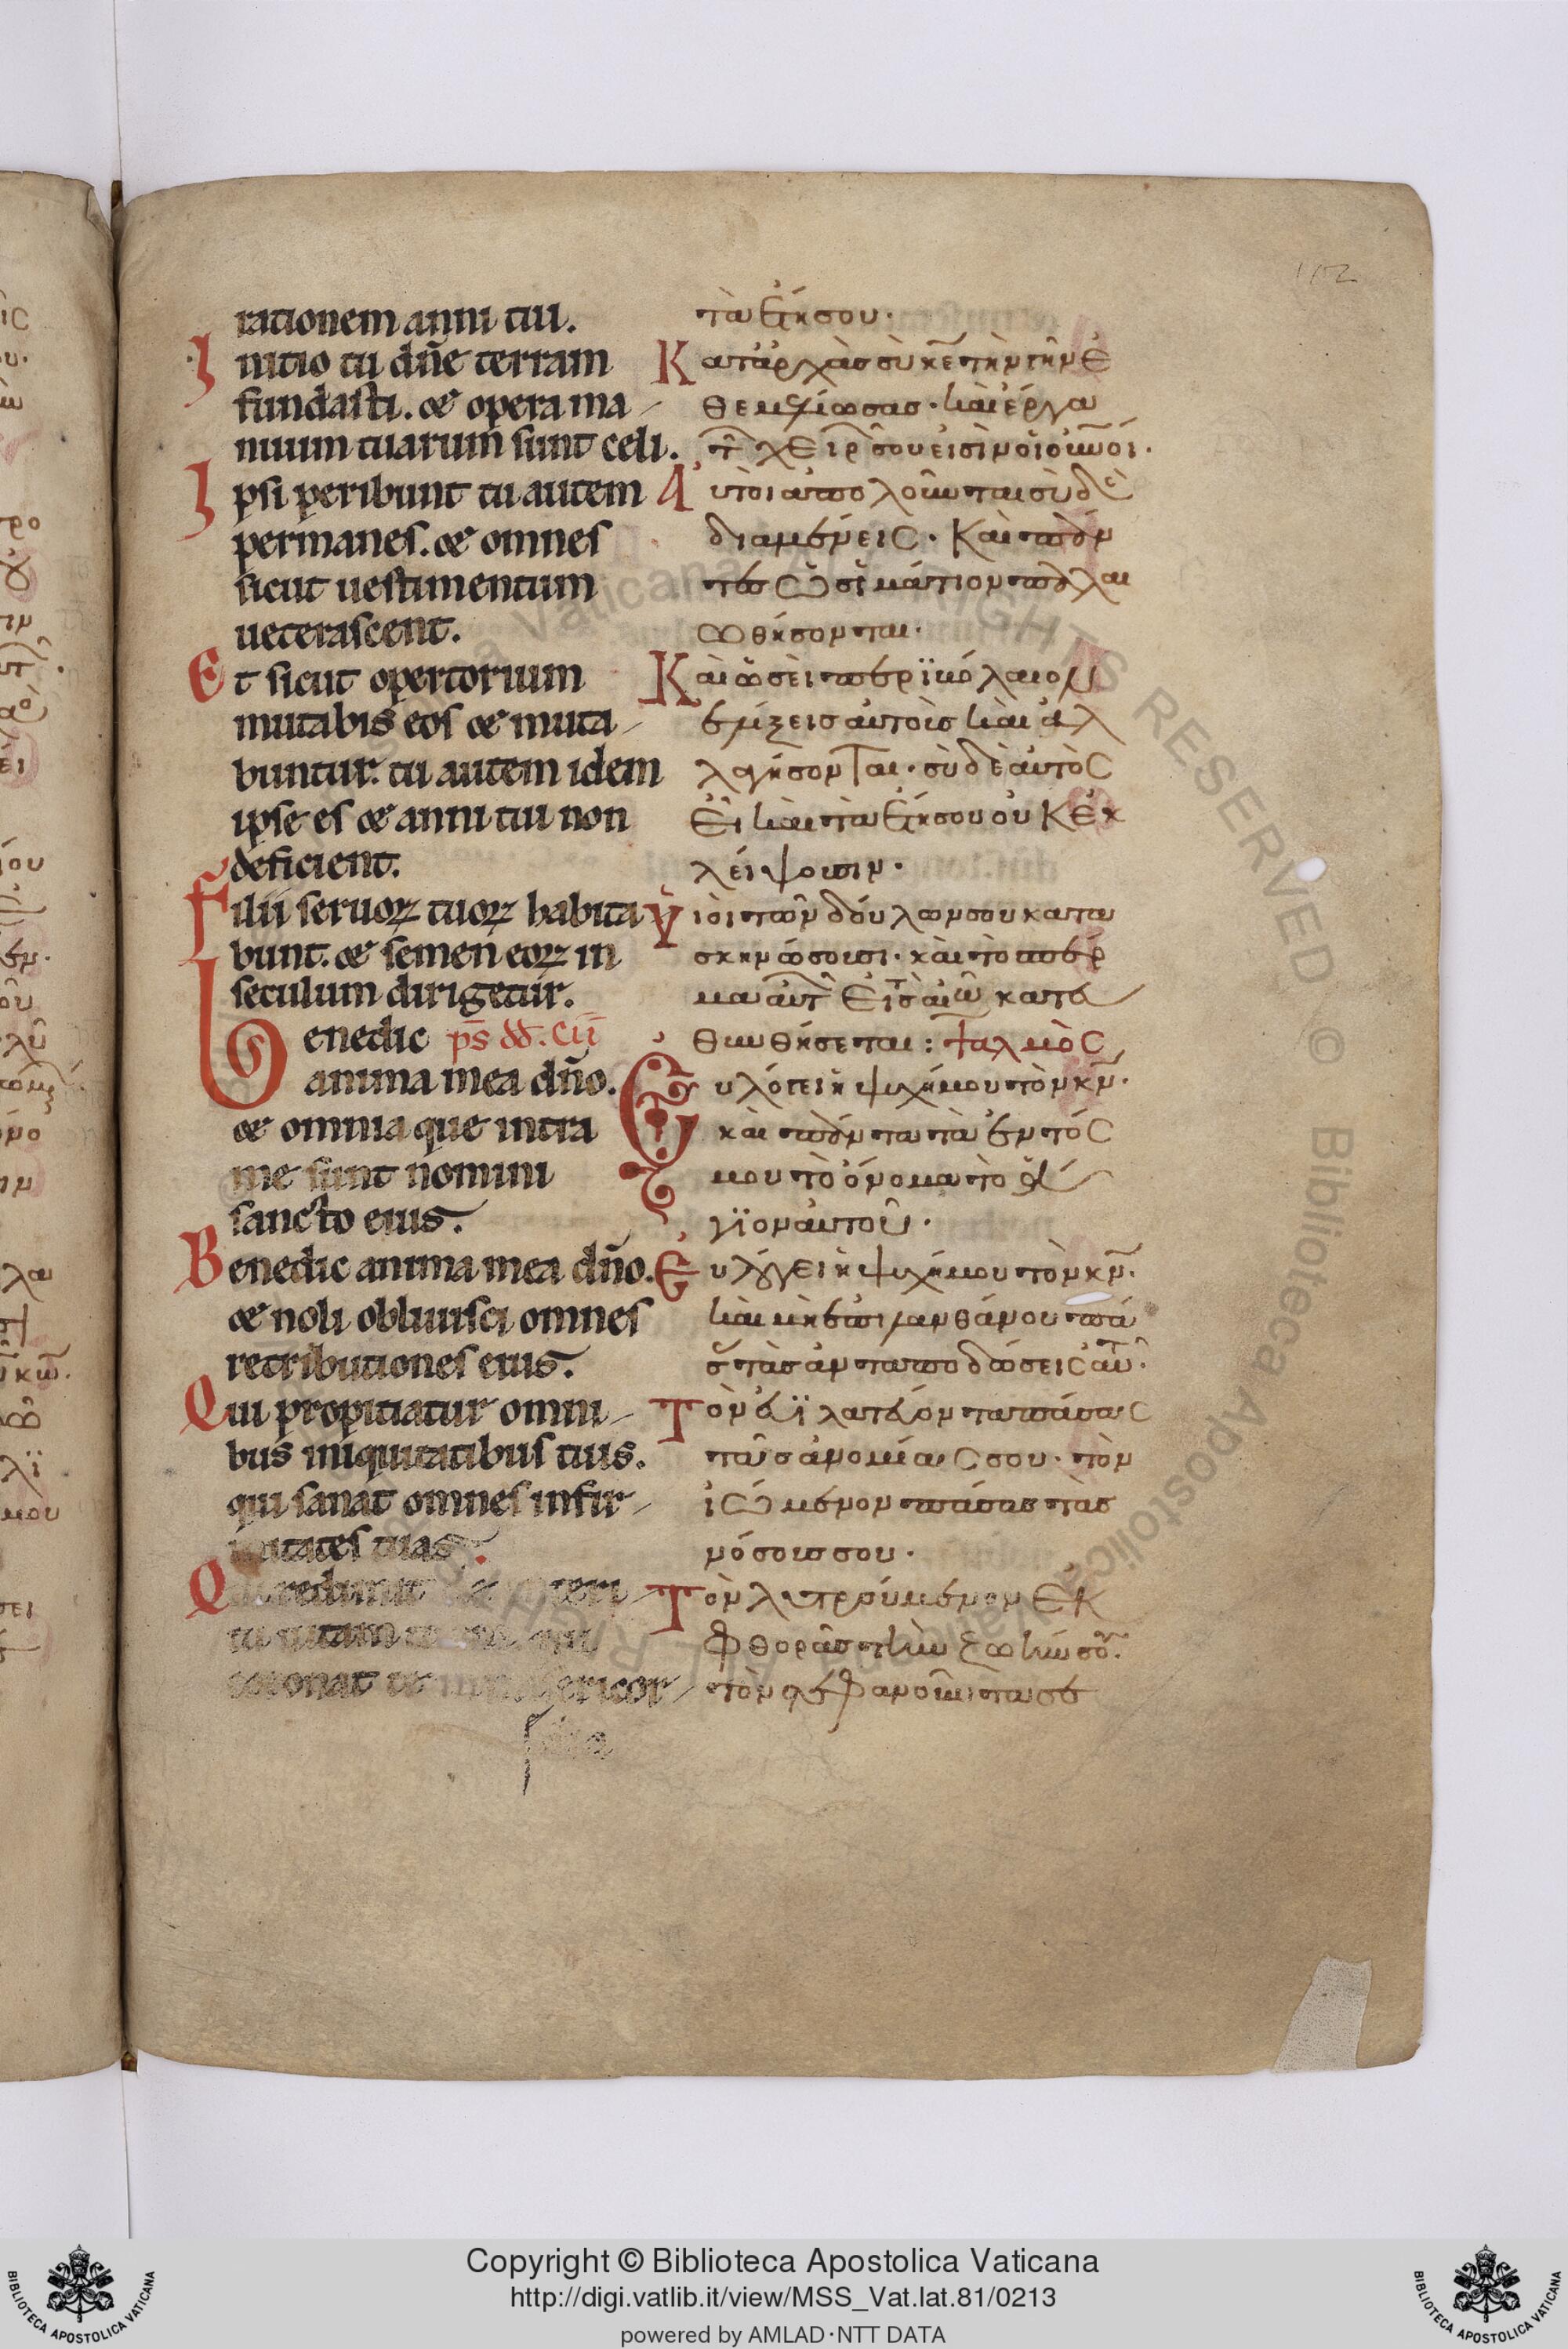 112
rationem anni tui.
Initio tu dñe terram
fundasti. & opera ma
nuum tuarum sunt celi.
Ipsi peribunt tu autem
permanes. & omnes
sicut uestimentum
ueterascent.
Et sicut opertorium
mutabis eos & muta
buntur. tu autem idem
ipse es & anni tui non
deficient.
Filii seruoꝝ tuoꝝ habita
bunt. & semen eoꝝ in
seculum dirigetur.
Benedic ps̄ dd̄. cii
anima mea dño.
& omnia que intra
me sunt nomini
sancto eius.
Benedic anima mea dño.
& noli obliuisci omnes
retributiones eius.
Qui propitiatur omni
bus iniquitatibus tuis.
qui sanat omnes infir
tates tuas.
redimit teri
tu uitam
coronat te ricor
τὰ ἔτη σου.
Κατ ἀρχὰς σὺ κε̄ τὴν γῆν ἐ
θεμελίωσας. καὶ ἔργα
τ͂ χειρ͂ σου εἰσὶν οἱ οὐν̄οί.
Ἀυτοὶ ἀπολοῦνται σὺ δὲ
διαμένεις. Καὶ πάν
τες ὡσ ἱμάτιον παλαι
ωθήσονται.
Καὶ ὡσεὶ περϊβόλαιον
ἑλίξεισ αὐτοὺσ καὶ ἀλ
λαγήσονται. σὺ δὲ ἀυτὸς
εἶ καὶ τὰ ἔτη σου οὐκ ἐκ
λείψουσιν.
Ὑιοὶ τῶν δούλων σου κατα
σκηνώσουσι. κὰι τὸ σπέρ
μα ἀυτ͂ εἰσ τ αἰῶ κατευ
θυνθήσεται: ψαλμὸς
Ἐυλόγει ἡ ψυχή μου τὸν κν̄.
κὰι πάντα τὰ ἐντός
μου τὸ ὄνομα τὸ ἅ
γϊον αὐτοῦ.
Ἐυλόγει ἡ ψυχή μου τὸν κν̄.
καὶ μὴ ἐπιλανθάνου πά
σ τὰσ ἀνταποδώσεις ἀυτ͂.
Τὸν εὐϊλατεύοντα πάσαις
ταῖσ ἀνομίαις σου. τὸν
ἰώμενον πάσας τὰς
νόσους σου.
Τὸν λυτρούμενον ἐκ
φθορᾶσ τὴν ζωήν σου.
τὸν στεφανοῦντα σε
Copyright © Biblioteca Apostolica Vaticana
http://digi.vatlib.it/view/MSS_Vat.lat.81/0213
powered by AMLAD·NTT DATA